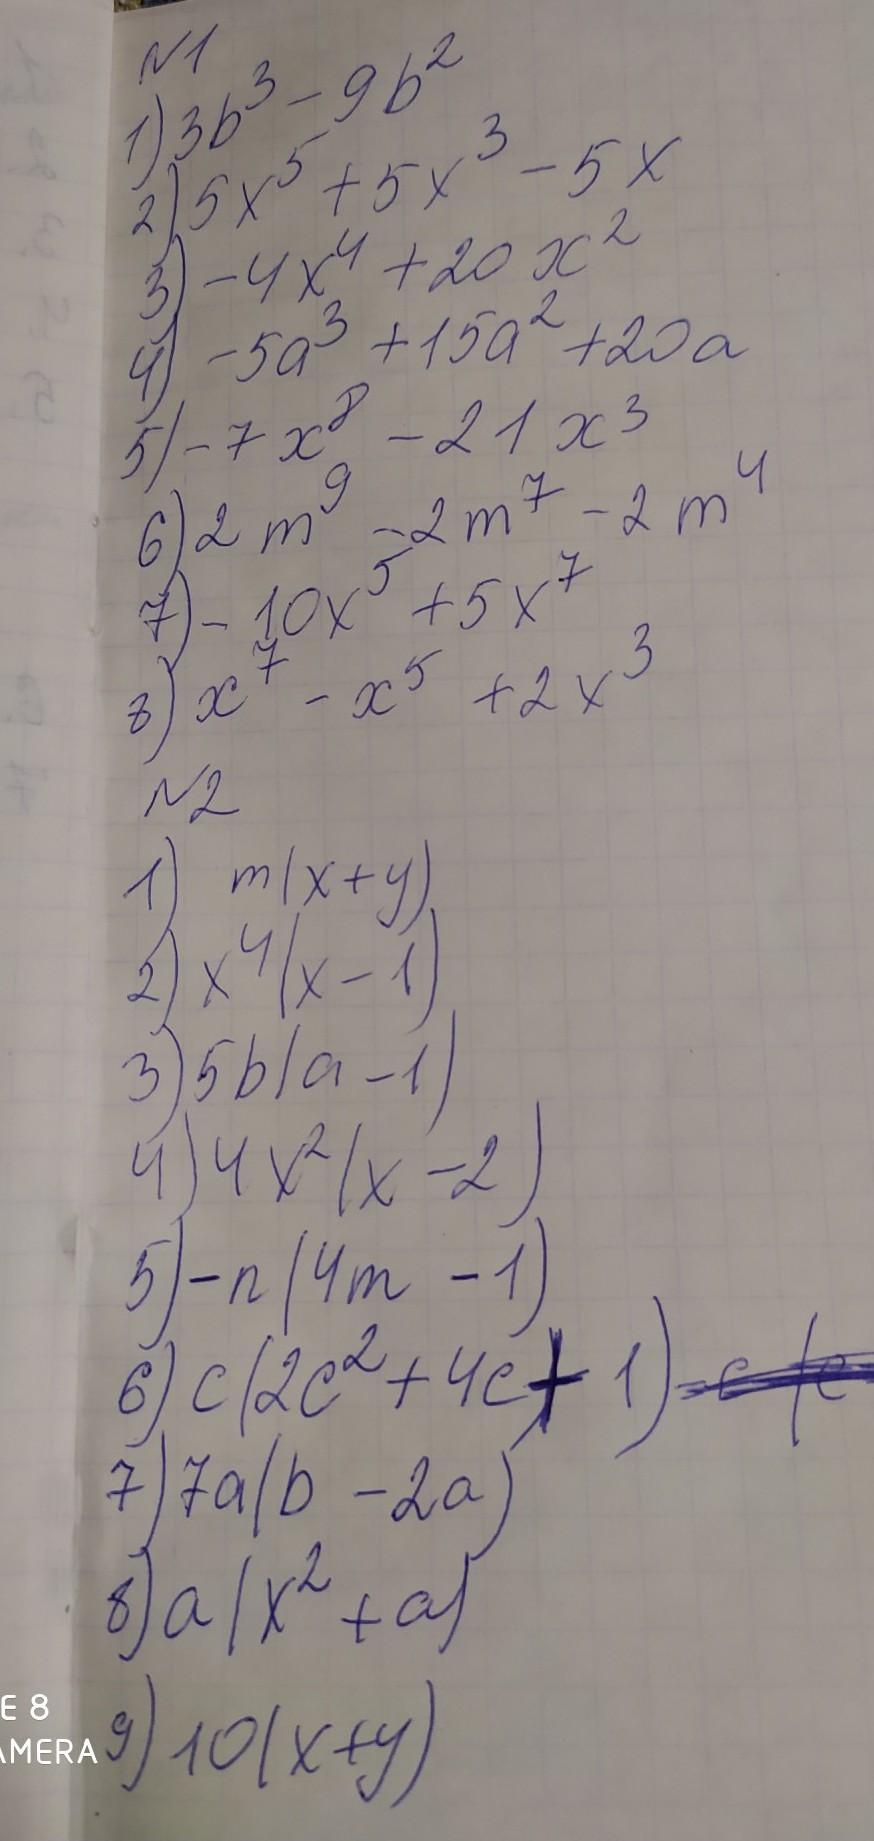 №1
1) 3b³ - 9b²
2) 5x⁵ + 5x³ - 5x
3) -4x⁴ + 20x²
4) -5a³ + 15a² + 20a
5) -7x⁸ - 21x³
6) 2m⁹ - 2m⁷ - 2m⁴
7) -10x⁵ + 5x⁷
8) x⁷ - x⁵ + 2x³
№2
1) m(x+y)
2) x⁴(x-1)
3) 5b(a-1)
4) 4x²(x-2)
5) -n(4m-1)
6) c(2c²+4c+1)
7) 7a(b-2a)
8) a(x²+a)
9) 10(x+y)
E 8
AMERA